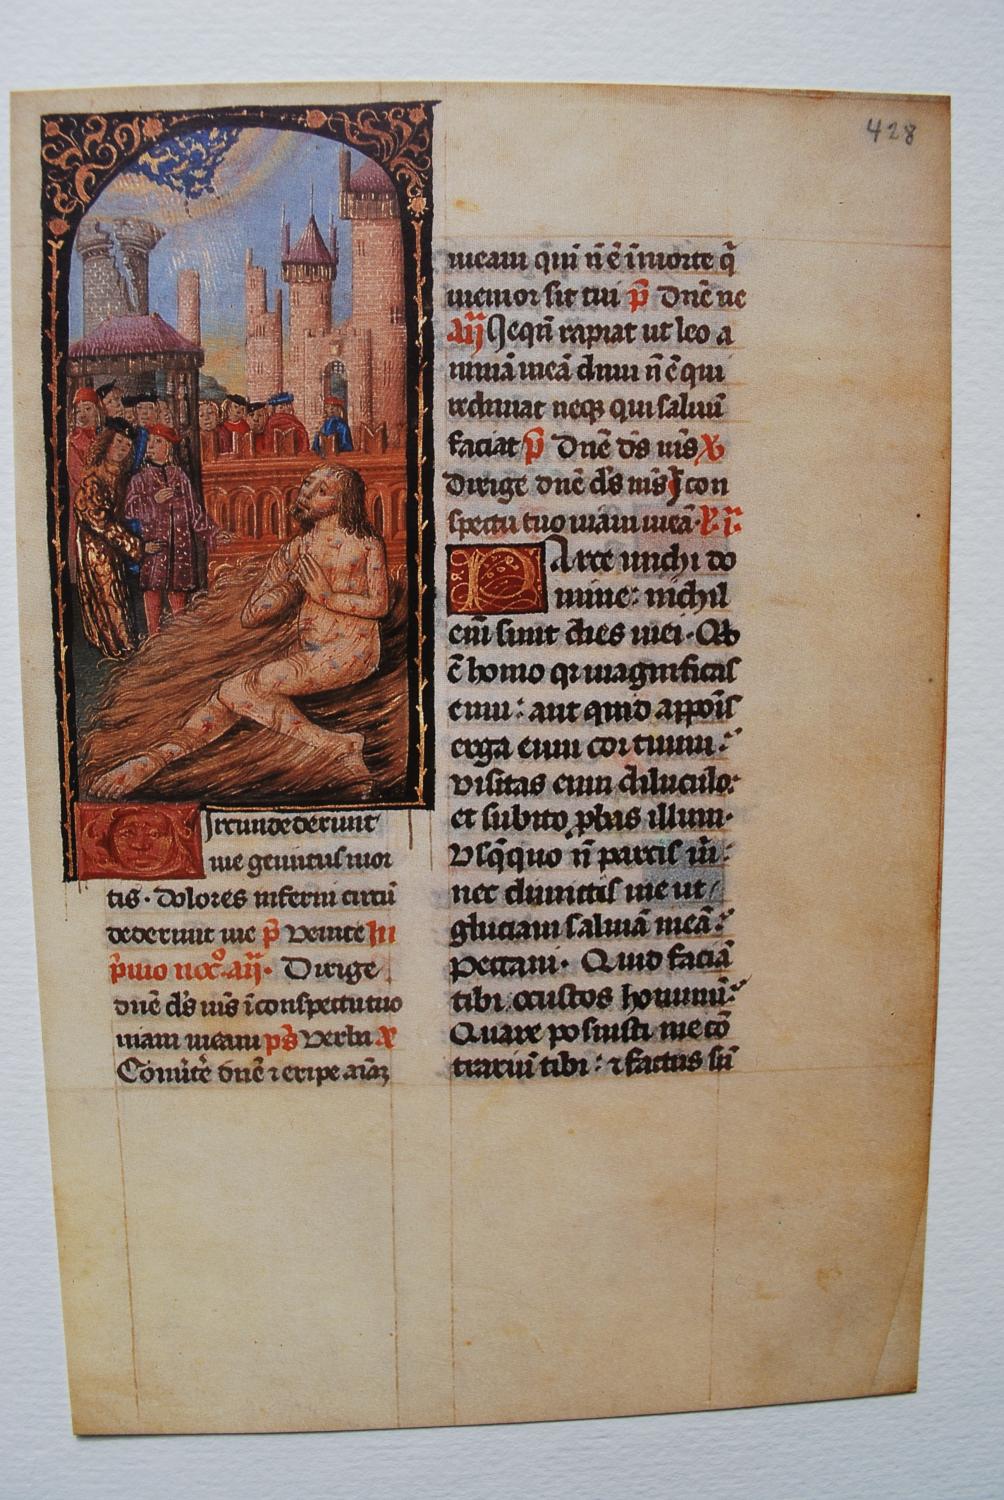 428
Circumdederunt
me gemitus mor
tis. dolores inferni circū
dederunt me p̄ Venite In
p̄mo noc̄. añ. Dirige
dnē ds̄ m̄s ī conspectu tuo
viam meam ps̄ Verba
dnē ⁊ eripe aīaȝ
meam qm̄ n̄ ē ī morte q̄
memor sit tui p̄ Dnē ne
añ Neqn̄ rapiat ut leo a
nimā meā dum n̄ ē qui
redimat neqȝ qui saluū
faciat p̄ Dnē ds̄ m̄s
Dirige dnē ds̄ m̄s ī con
spectu tuo viam meā.
Parce michi do
mine: nichil
em̄ sunt dies mei. Qd
ē homo qr magnificas
eum: aut quid appoīs
erga eum cor tuum:
visitas eum diluculo:
et subito p̱bas illum.
Vsq̄quo n̄ parcis m̄:
nec dimittis me ut
gluciam saliuā meā:
Peccaui. Quid faciā
tibi o custos hominū:
Quare posuisti me cō
trariū tibi: ⁊ factus sū